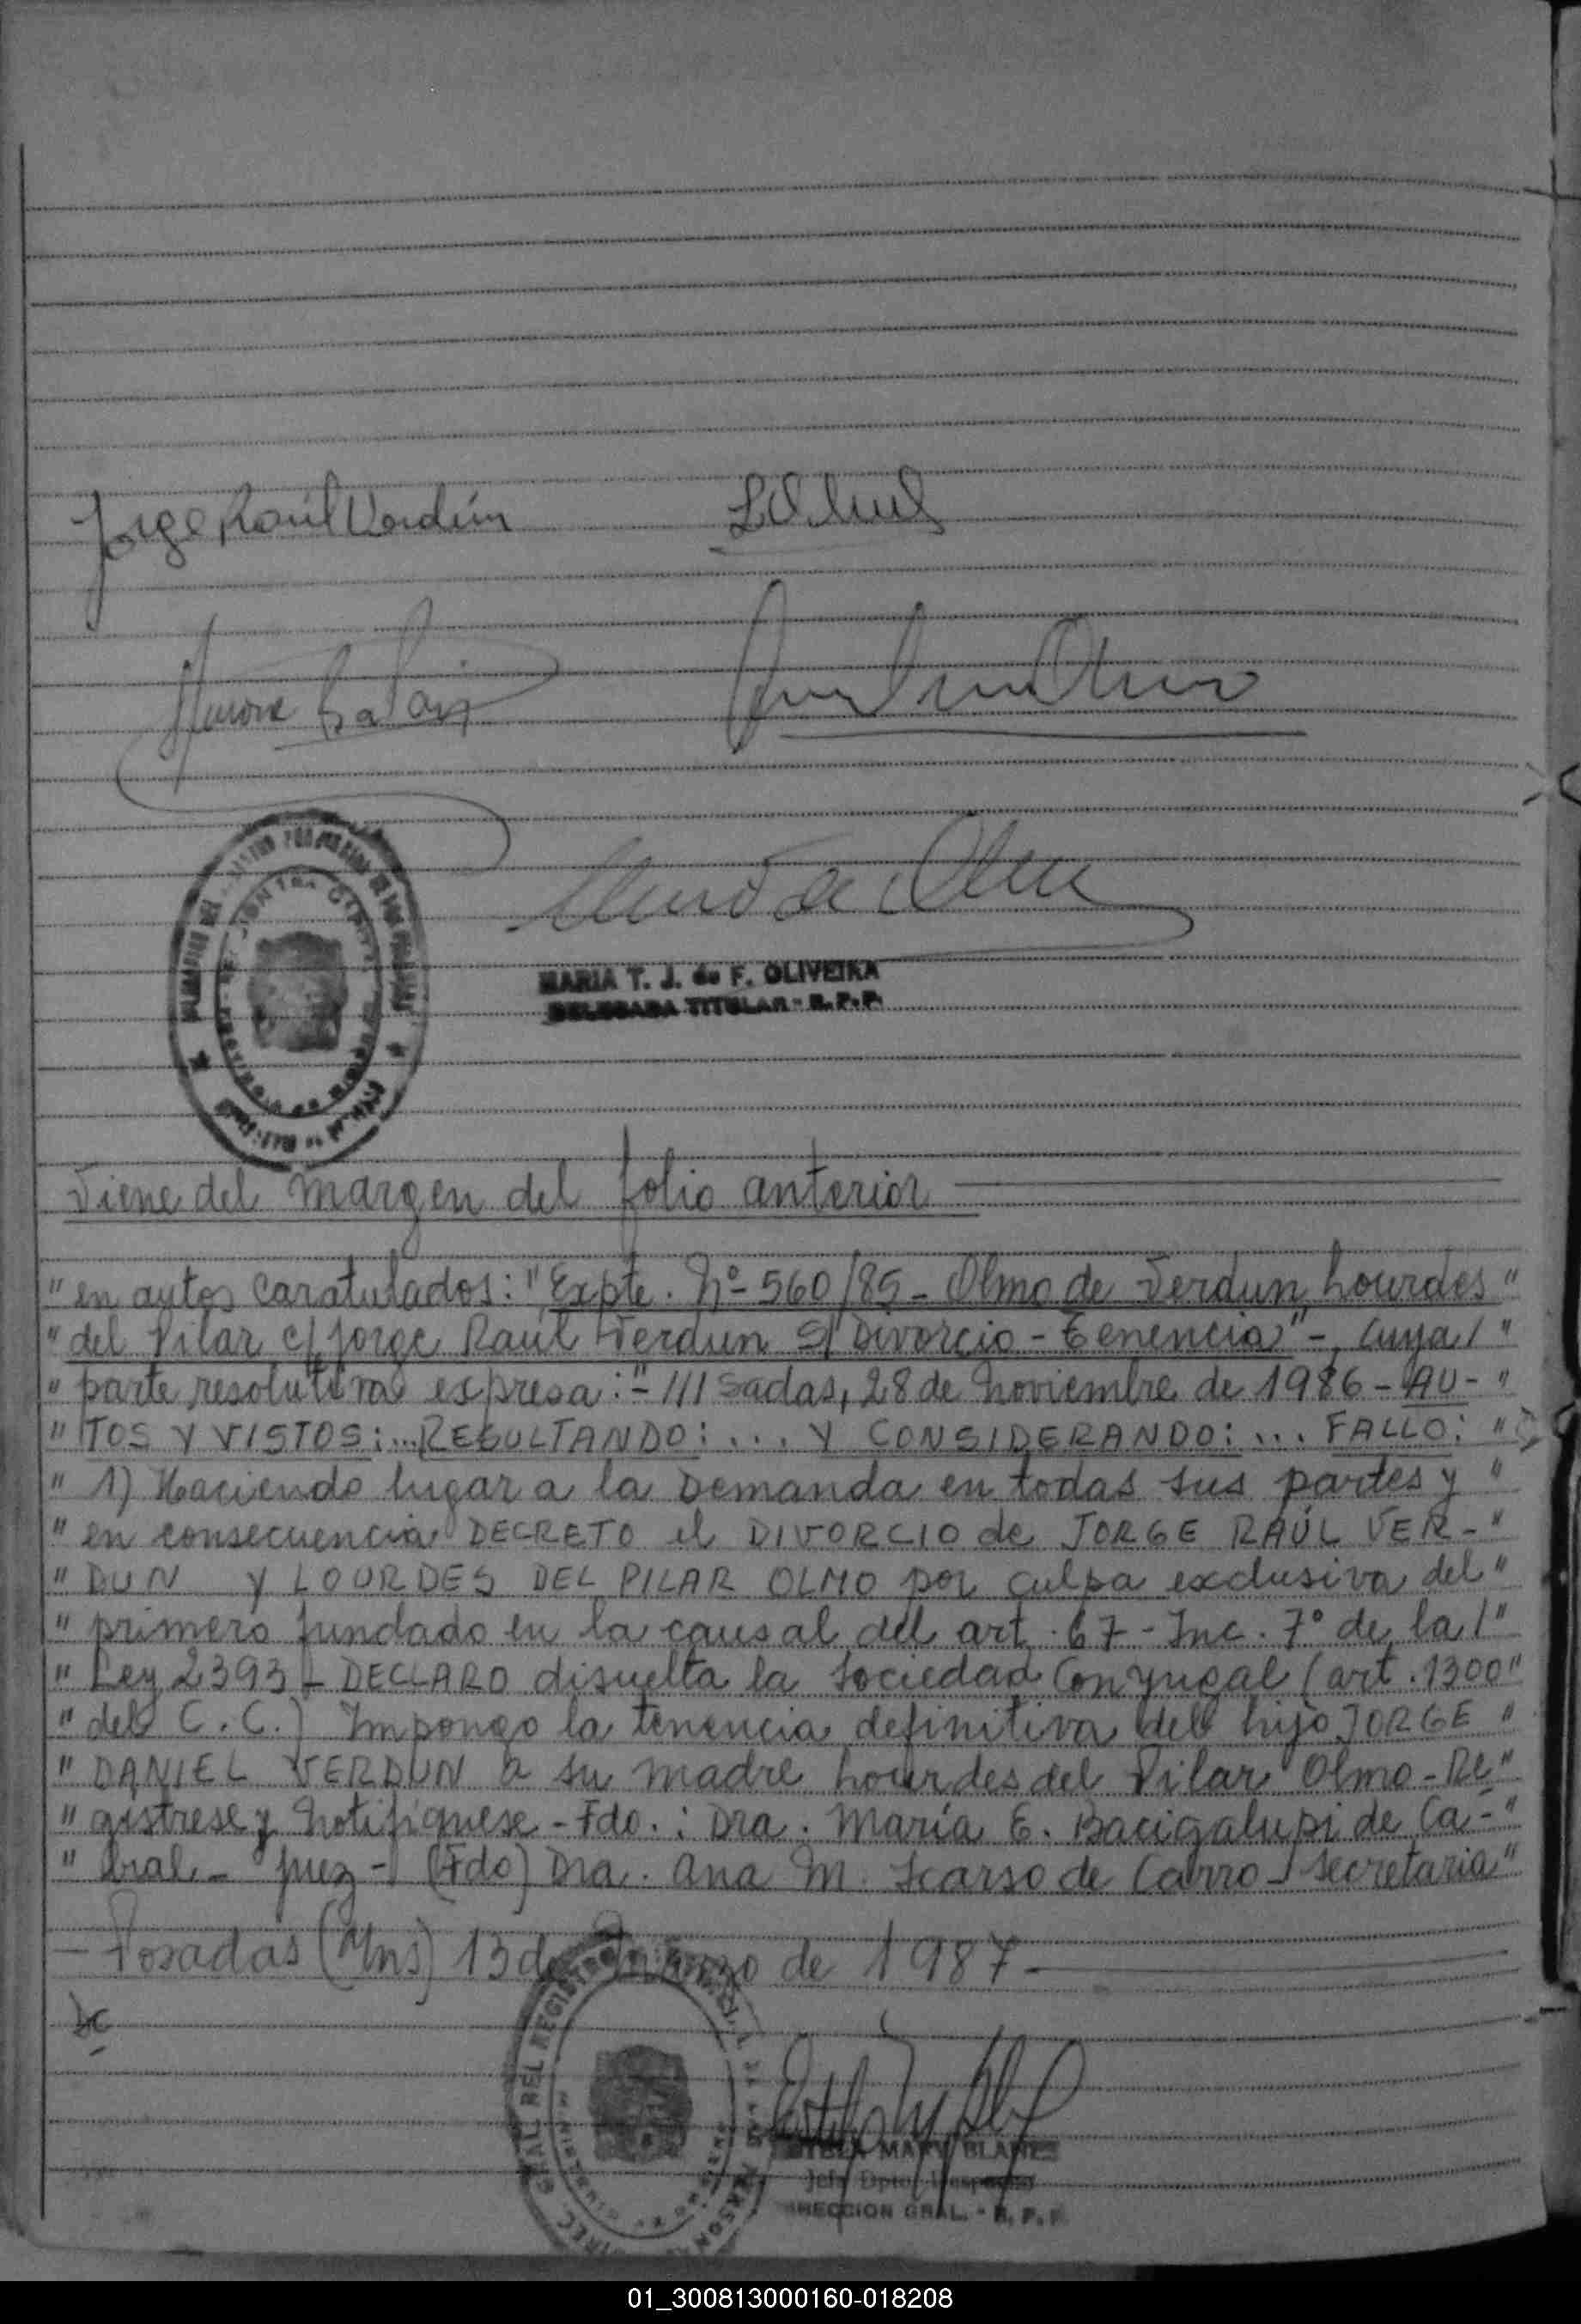 Jorge Raúl Verdún
MARIA T. J. de F. OLIVEIRA
DELEGADA TITULAR - R. P. P.
Viene del margen del folio anterior
"en autos caratulados: "Expte. Nº 560/85 - Olmo de Verdun Lourdes"
"del Pilar c/ Jorge Raúl Verdun S/ Divorcio - Tenencia" -, cuya/"
"parte resolutiva expresa: "- ///sadas, 28 de Noviembre de 1986 - AU-"
"TOS Y VISTOS: ... RESULTANDO: ... Y CONSIDERANDO: ... FALLO: "
"1) Haciendo lugar a la Demanda en todas sus partes y "
"en consecuencia DECRETO el DIVORCIO de JORGE RAÚL VER-"
"DUN Y LOURDES DEL PILAR OLMO por culpa exclusiva del"
"primero fundado en la causal del art. 67 - Inc. 7º de la/"
"Ley 2393 - DECLARO disuelta la Sociedad Conyugal (art. 1300"
"del C. C.) Impongo la tenencia definitiva del hijo JORGE "
"DANIEL VERDUN a su madre Lourdes del Pilar Olmo - Re"
"gistrese y Notifíquese - Fdo. : Dra. María E. Bacigalupi de Ca-"
"bral - Juez - (Fdo) Dra. Ana M. Scarso de Carro - Secretaria"
- Posadas (Mns) 13 de Marzo de 1987 -
MARY BLANES
Jefe Dpto. Despacho
DIRECCION GRAL. - R. P. P.
01_300813000160-018208